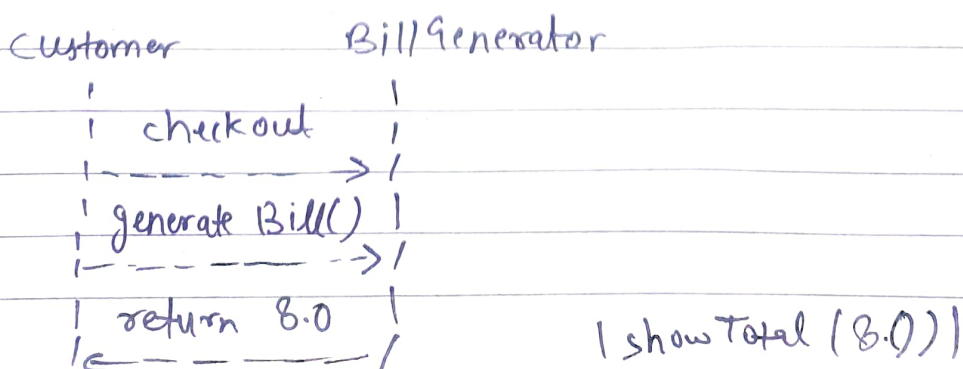 Customer BillGenerator
checkout
generate Bill()
return 8.0
showTotal (8.0)